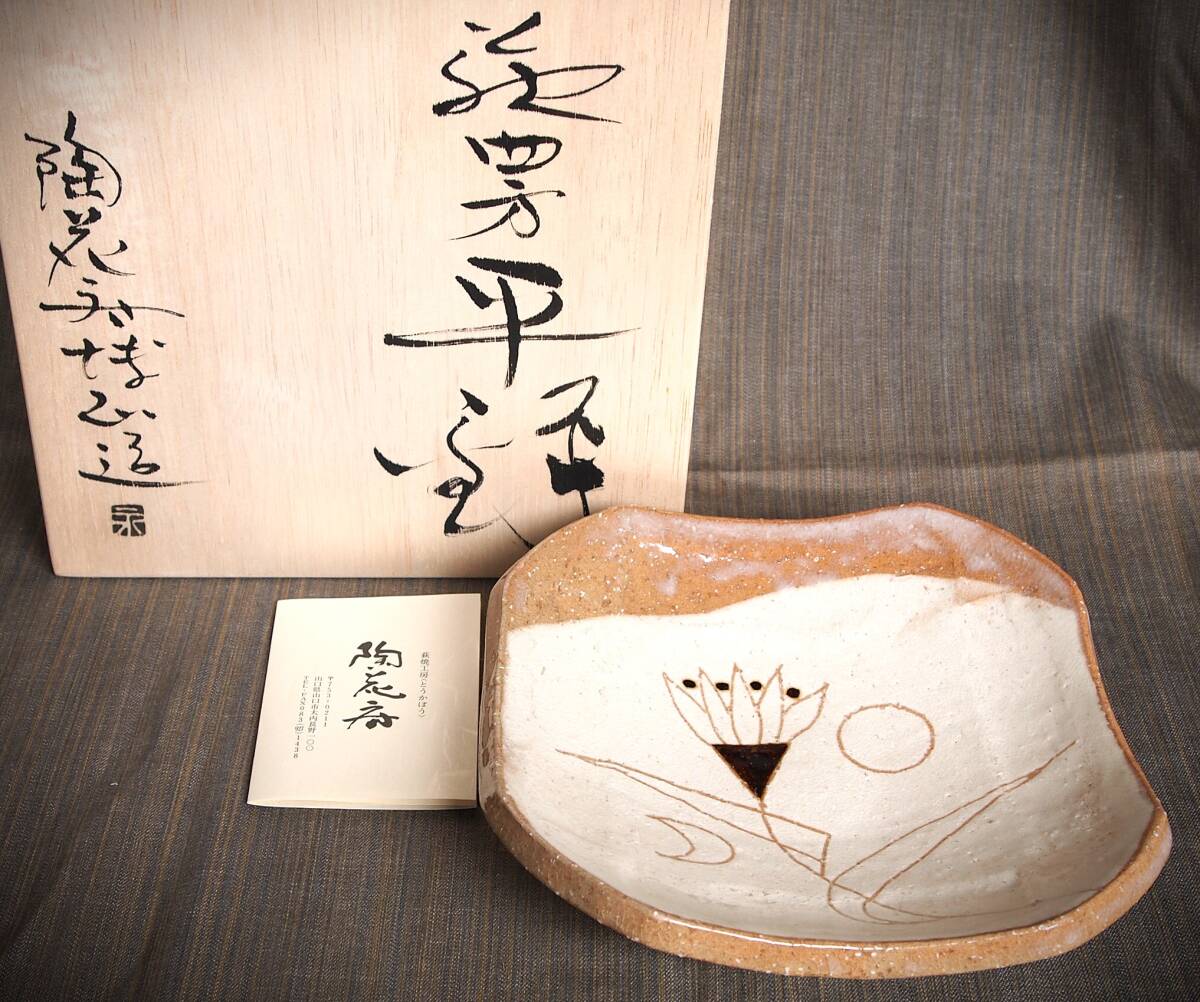 萩四方平鉢
陶花房 博正造
萩焼工房(とうかぼう)
陶花房
〒753-0211
山口県山口市大内長野一〇〇
TEL・FAX083 1438